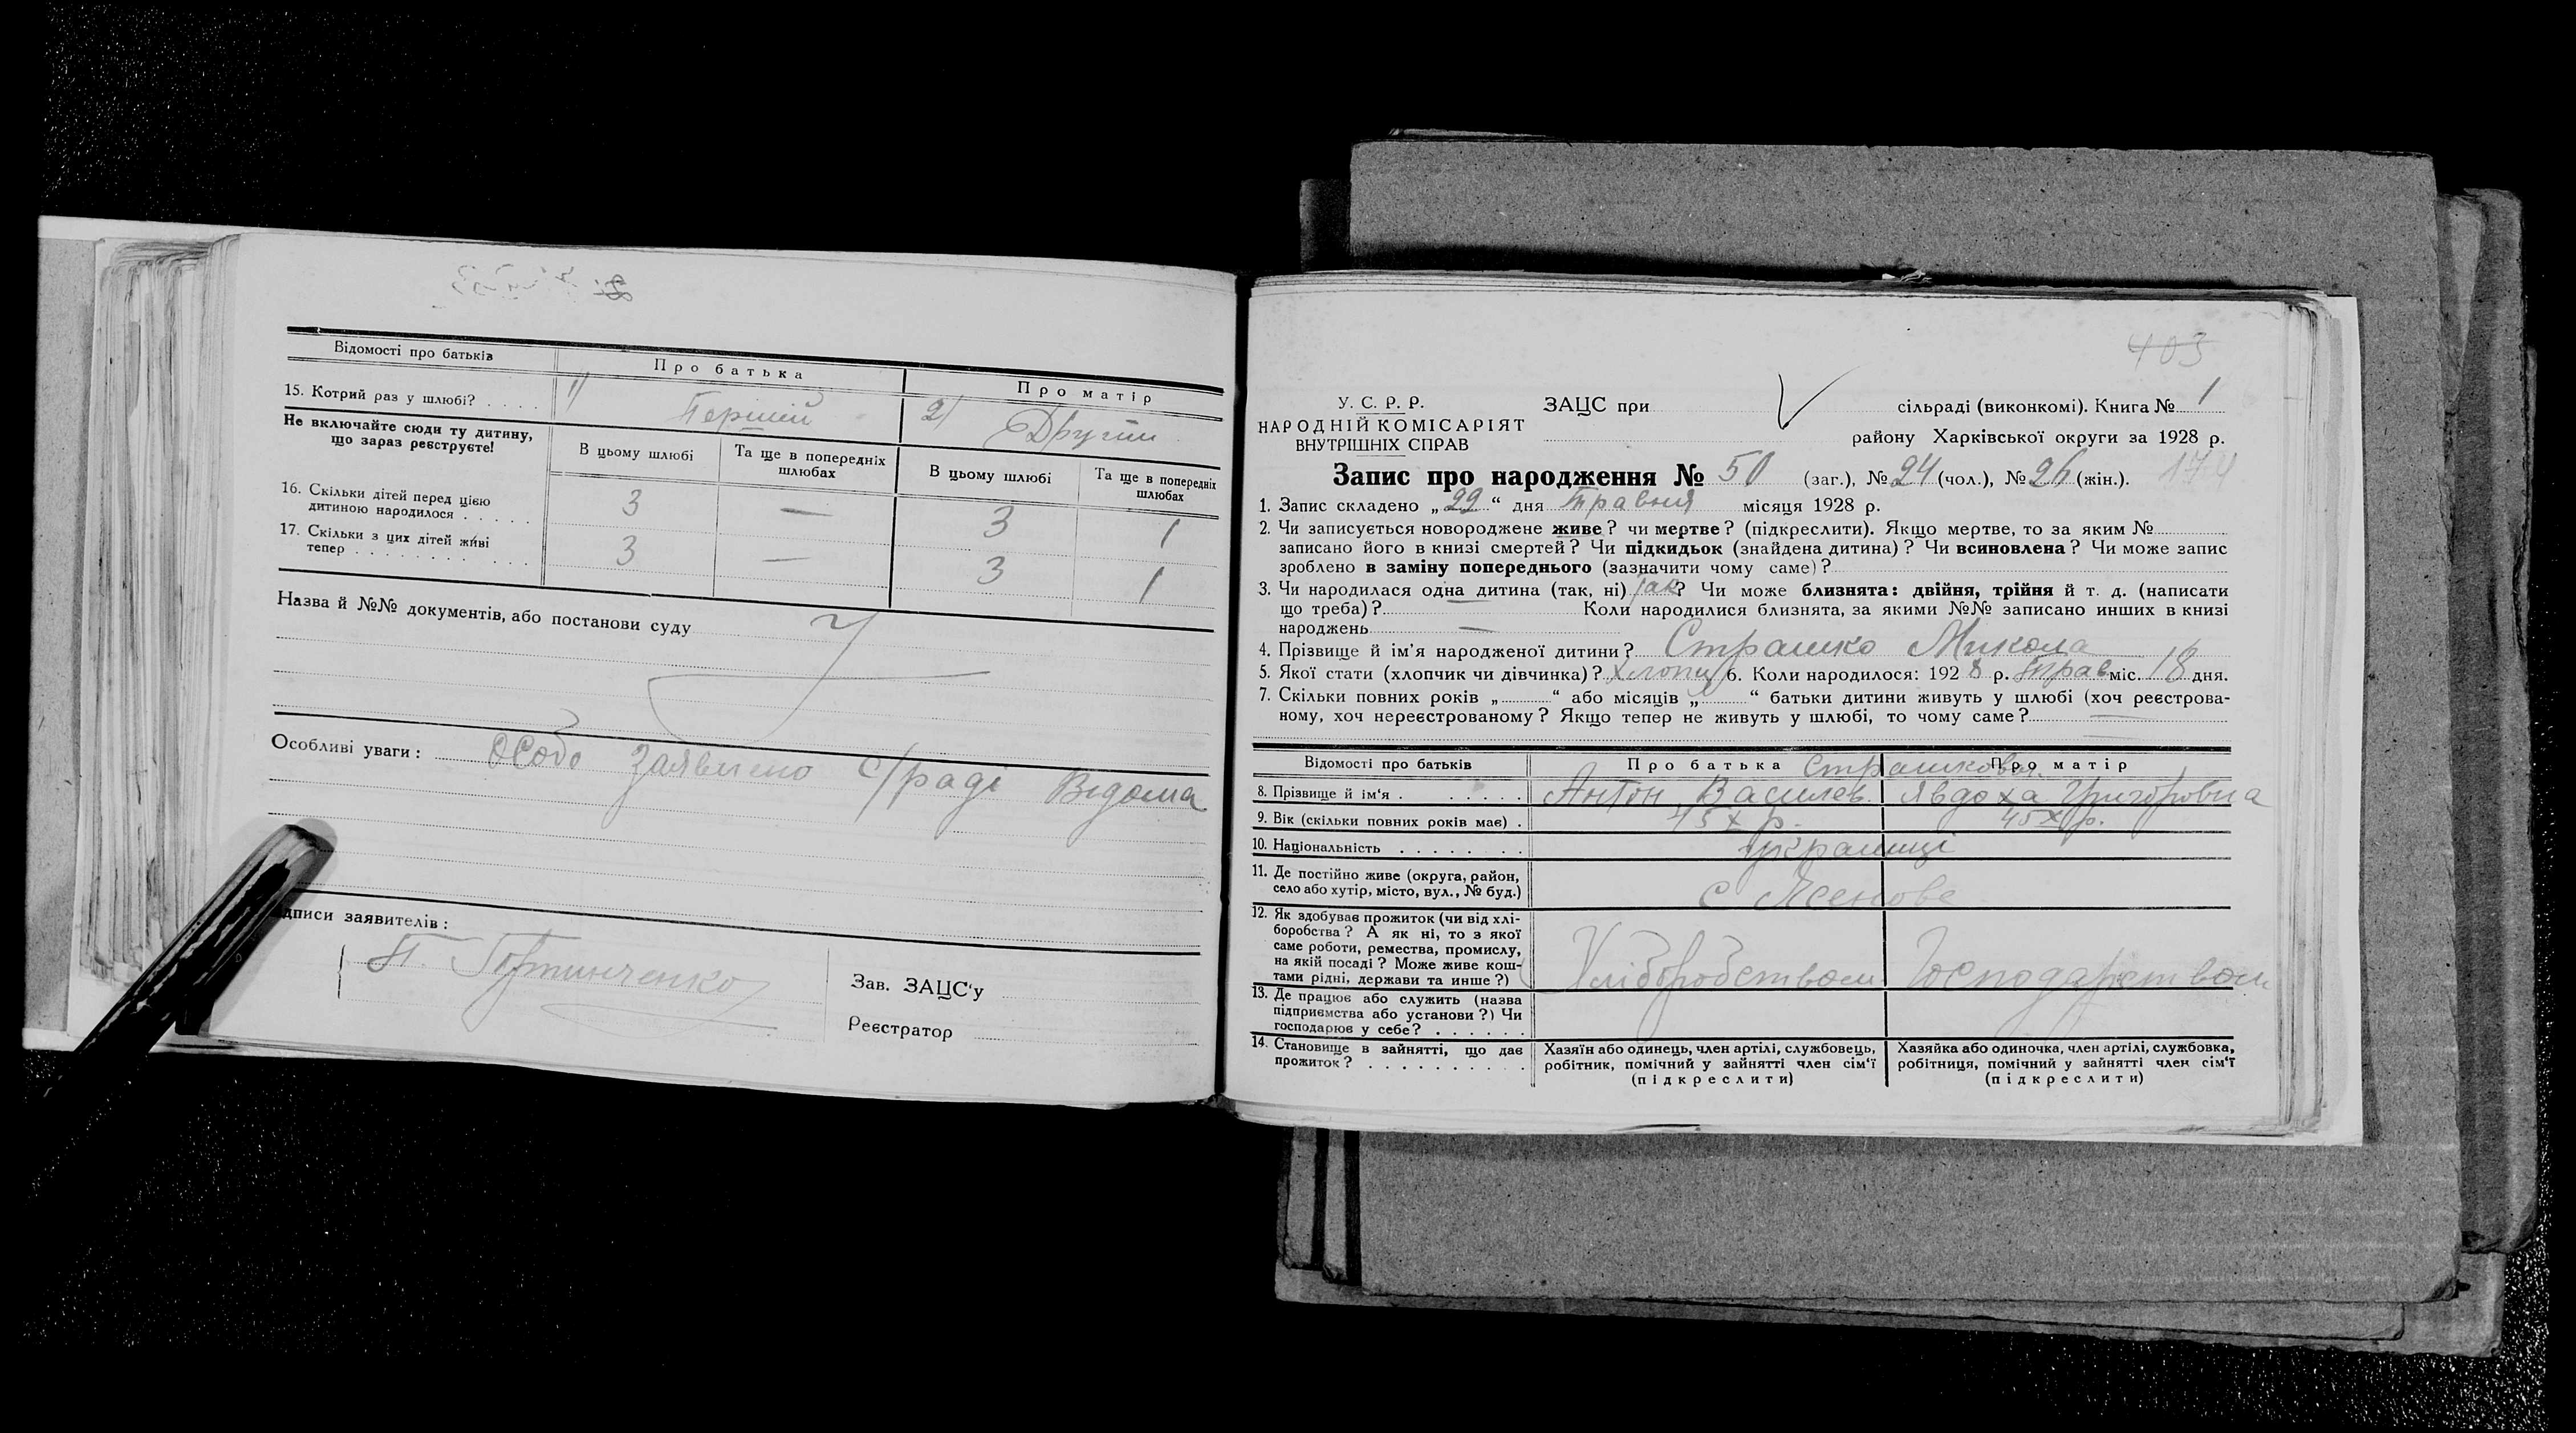 Відомості про батьків
Про батька
Про матір
15. Котрий раз у шлюбі? . . . .
1) Перший
2) Другий
Не включайте сюди ту дитину,
що зараз реєструєте!
В цьому шлюбі
Та ще в попередніх
шлюбах
В цьому шлюбі
Та ще в попередніх
шлюбах
16. Скільки дітей перед цією
дитиною народилося . . . . .
3 — 3 1
17. Скільки з цих дітей живі
тепер . . . . . . . . . . .
3 — 3 1
Назва й №№ документів, або постанови суду
Особливі уваги: Особо заявлено с/раді Відома
дписи заявителів:
П.
Зав. ЗАЦС'у
Реєстратор
403
У. С. Р. Р.
НАРОДНІЙ КОМІСАРІЯТ
ВНУТРІШНІХ СПРАВ
ЗАЦС при сільраді (виконкомі). Книга № 1
району Харківської округи за 1928 р.
Запис про народження № 50 (заг.), № 24 (чол.), № 26 (жін.). 174
1. Запис складено „22“ дня травня місяця 1928 р.
2. Чи записується новороджене живе? чи мертве? (підкреслити). Якщо мертве, то за яким №
записано його в книзі смертей? Чи підкидьок (знайдена дитина)? Чи всиновлена? Чи може запис
зроблено в заміну попереднього (зазначити чому саме)?
3. Чи народилася одна дитина (так, ні) так? Чи може близнята: двійня, трійня й т. д. (написати
що треба)? — Коли народилися близнята, за якими №№ записано инших в книзі
народжень —
4. Прізвище й ім'я народженої дитини? Страшко Микола
5. Якої стати (хлопчик чи дівчинка)? хлопч 6. Коли народилося: 1928 р. Трав міс. 18 дня.
7. Скільки повних років „ “ або місяців „ “ батьки дитини живуть у шлюбі (хоч реєстрова-
ному, хоч нереєстрованому? Якщо тепер не живуть у шлюбі, то чому саме? —
Відомості про батьків
Про батька
Про матір
Страшкови
8. Прізвище й ім'я . . . . . .
Антон Василев.
Явдоха Григоровна
9. Вік (скільки повних років має) .
45х р.
45х р.
10. Національність . . . . . . .
українці
11. Де постійно живе (округа, район,
село або хутір, місто, вул., № буд.)
с Ясенове
12. Як здобуває прожиток (чи від хлі-
боробства? А як ні, то з якої
саме роботи, ремества, промислу,
на якій посаді? Може живе кош-
тами рідні, держави та инше?)
Хліборобством
Господарством
13. Де працює або служить (назва
підприємства або установи?) Чи
господарює у себе? . . . . . .
14. Становище в зайнятті, що дає
прожиток? . . . . . . . . . .
Хазяїн або одинець, член артілі, службовець,
робітник, помічний у зайнятті член сім'ї
(підкреслити)
Хазяйка або одиночка, член артілі, службовка,
робітниця, помічний у зайнятті член сім'ї
(підкреслити)